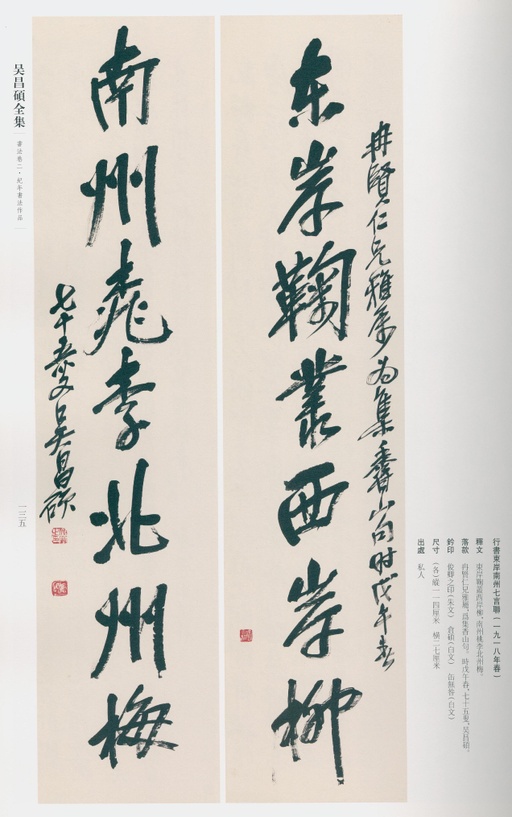 东岸鞠叢西岸柳
南州桃李北州梅
冉賢仁兄雅属，为集香山句，时戊午春
七十五叟吴昌碩
吴昌碩全集
書法卷二·紀年書法作品
一三五
行書東岸南州七言聯（一九一八年春）
釋文 東岸鞠叢西岸柳，南州桃李北州梅。
落款 冉賢仁兄雅屬，爲集香山句。時戊午春，七十五叟，吴昌碩。
鈐印 俊卿之印（朱文） 倉碩（白文） 缶無咎（白文）
尺寸 （各）縱一一四厘米 橫二七厘米
出處 私人